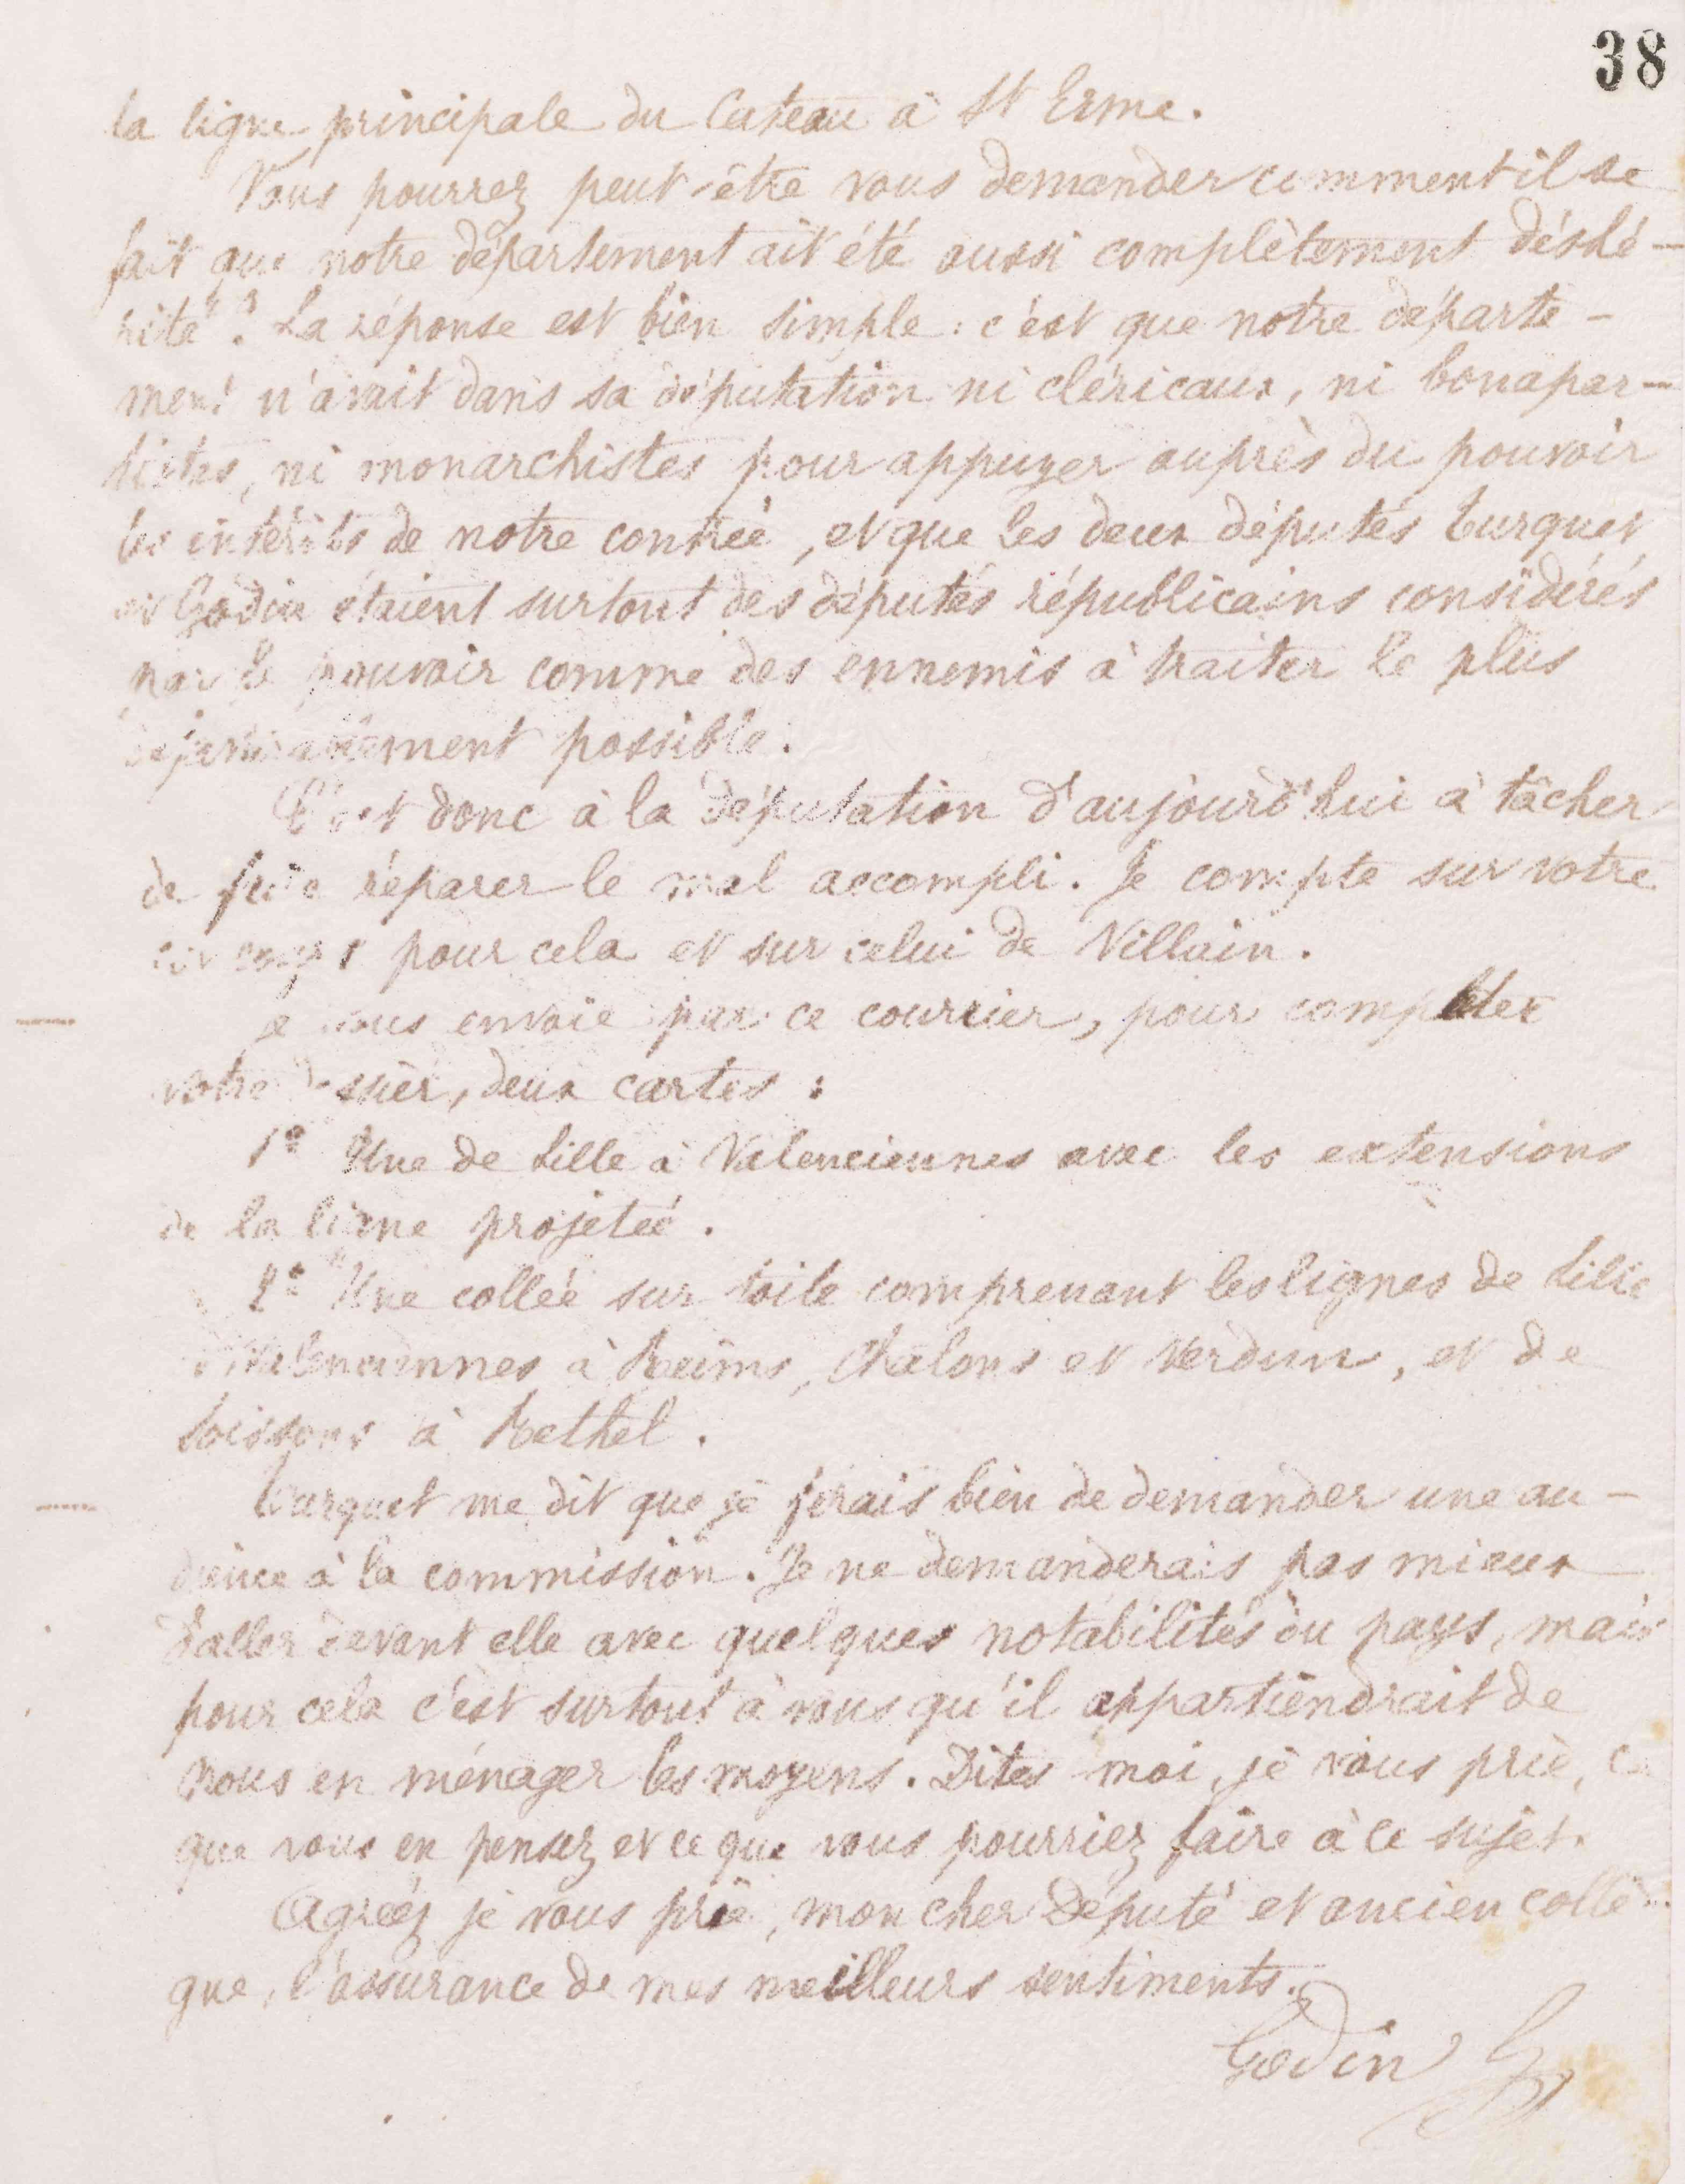 38
la ligne principale du Cateau à St Erme.
Vous pourrez peut-être vous demander comment il se
fait que notre département ait été aussi complètement déshé-
rité ? La réponse est bien simple : c'est que notre départe-
ment n'avait dans sa députation ni cléricaux, ni bonapar-
tistes, ni monarchistes pour appuyer auprès du pouvoir
les intérêts de notre contrée, et que les deux députés Turquet
et Godin étaient surtout des députés républicains considérés
par le pouvoir comme des ennemis à traiter le plus
possible.
C'est donc à la députation d'aujourd'hui à tâcher
de faire réparer le mal accompli. Je compte sur votre
concours pour cela et sur celui de Villain.
Je vous envoie par ce courrier, pour compléter
votre dossier, deux cartes :
1° Une de Lille à Valenciennes avec les extensions
de la ligne projetée.
2° Une collée sur toile comprenant les lignes de Lille
Valenciennes à Reims, Châlons et Verdun, et de
Soissons à Rethel.
Turquet me dit que je ferais bien de demander une au-
dience à la commission. Je ne demanderais pas mieux
d'aller devant elle avec quelques notabilités du pays, mais
pour cela c'est surtout à vous qu'il appartiendrait de
nous en ménager les moyens. Dites moi, je vous prie, ce
que vous en pensez et ce que vous pourriez faire à ce sujet.
Agréez je vous prie, mon cher Député et ancien collè-
gue, l'assurance de mes meilleurs sentiments.
Godin